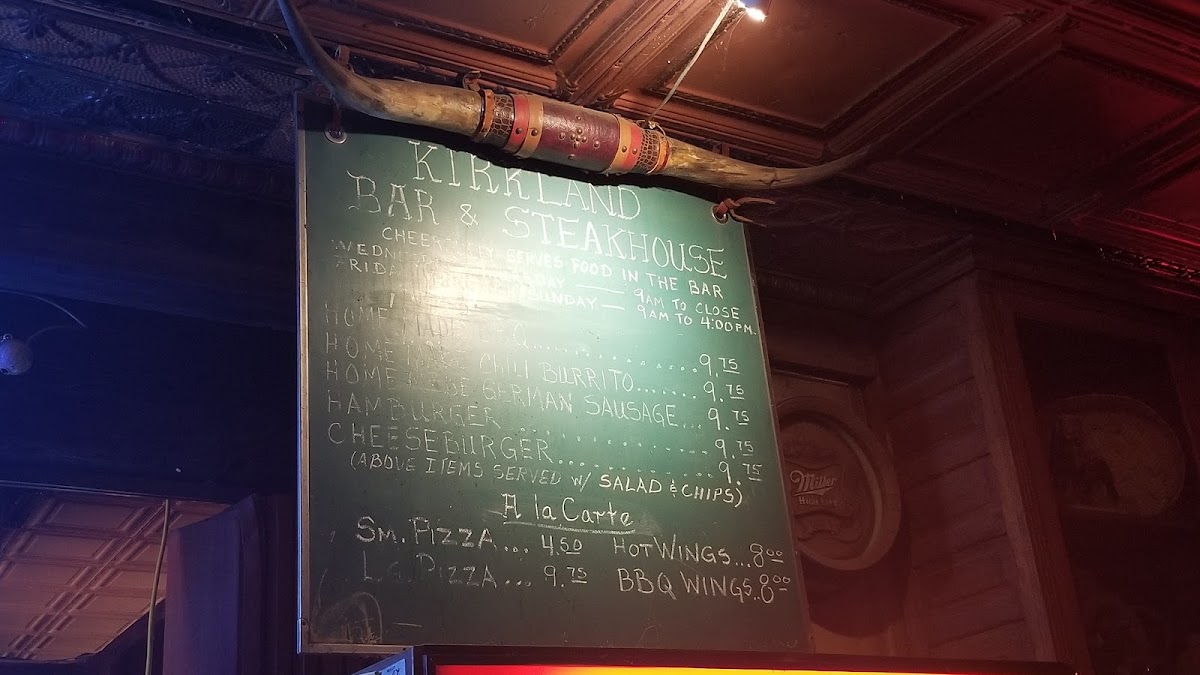 KIRKLAND
BAR & STEAKHOUSE
CHEERFULLY SERVES FOOD IN THE BAR
WEDNESDAY ——— 9AM TO CLOSE
FRIDAY SUNDAY — 9AM TO 4:00PM.
HOMEMADE .......... 9.75
HOMEMADE CHILI BURRITO....... 9.75
HOMEMADE GERMAN SAUSAGE... 9.75
HAMBURGER .......... 9.75
CHEESEBURGER .......... 9.75
(ABOVE ITEMS SERVED W/ SALAD & CHIPS)
A la Carte
SM. PIZZA... 4.50 HOT WINGS...8.00
LG. PIZZA... 9.75 BBQ WINGS..8.00
Miller
HIGH LIFE